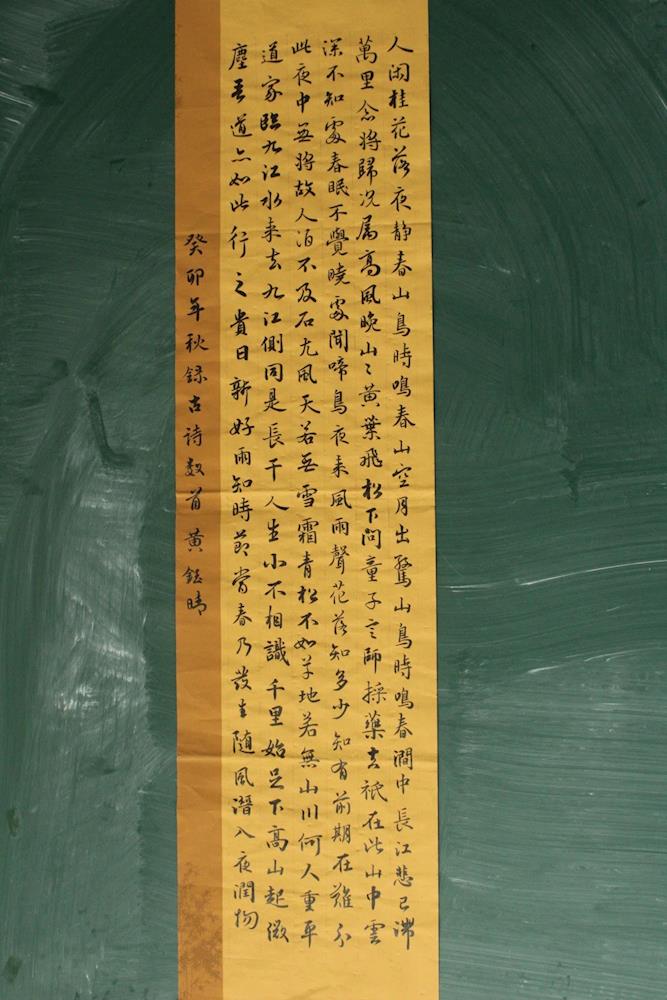 人闲桂花落夜静春山鳥時鳴春山空月出驚山鳥時鳴春澗中長江悲已滞
萬里念將歸况属高風晚山〻黄葉飛松下问童子言師採藥去祇在此山中雲
深不知處春眠不覺曉處聞啼鳥夜来風雨聲花落知多少知有前期在難分
此夜中無將故人酒不及石尤風天若無雪霜青松不如草地若無山川何人重平
道家臨九江水来去九江側同是長干人生小不相識千里始足下高山起微
塵吾道亦如此行之貴日新好雨知時節當春乃發生随風潛入夜潤物
癸卯年秋録古诗数首黄鈺晴